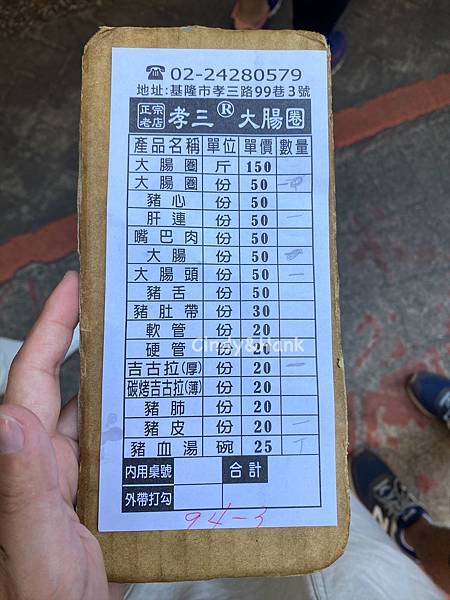 ☎02-24280579
地址:基隆市孝三路99巷3號
正宗老店 孝三® 大腸圈
產品名稱 單位 單價 數量
大腸圈 斤 150
大腸圈 份 50
豬心 份 50
肝連 份 50 一
嘴巴肉 份 50
大腸 份 50
大腸頭 份 50 一
豬舌 份 50
豬肚帶 份 30
軟管 份 20
硬管 份 20
Cindy&hank
吉古拉(厚) 份 20 一
碳烤吉古拉(薄) 份 20
豬肺 份 20
豬皮 份 20 一
豬血湯 碗 25 丁
內用桌號 合計
外帶打勾
94-3